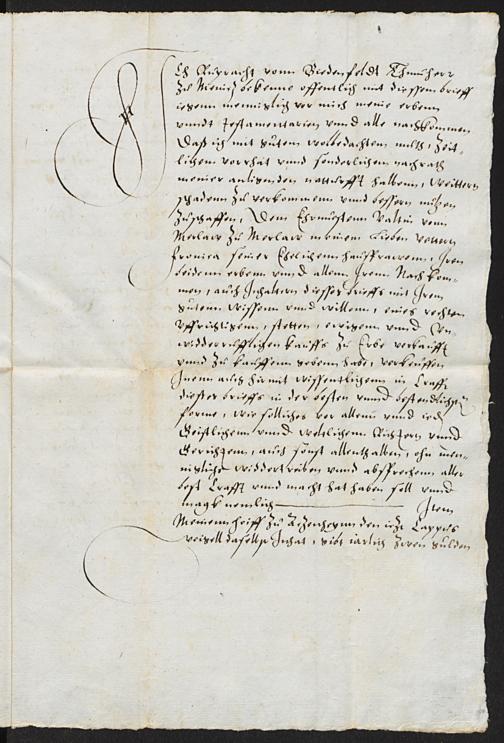 Ich Ruprecht vonn Biedenfeldt Thumherr
Zu Meintz bekenne offentlich mit diessem brieff
gegenn menniglich vor mich meine erbenn
vnndt Testamentarien vnnd alle nachkommen
Daß ich mit gutem vorbedachten muth, Zeit-
lichem vorrhat vnnd sonderlichem nachrath
meiner anligenden notturfft halbenn, weittern
schadenn Zu verkommenn vnnd bessern nutzen
Zuschaffen, Dem Ehrnuesten Valtin vonn
Merlaw Zu Merlaw meinem Lieben vettern
fronica seiner Ehelichenn haussfrawenn, Iren
beidenn erbenn vnnd allenn Iren Nachkom-
men, auch Inhaltern diesses brieffs mit Irem
gutem wissenn vnnd willenn, eines rechten
vffrichtigenn, stetten, ewigenn vnnd Vn-
widderrufflichen kauffs Zu Erbe verkaufft
vnnd Zu kauffenn gebenn habe, verkeuffen
Inenn auch hiemit wissentlichenn in Krafft
diesses brieffs in der besten vnnd bestendlichsten
forme, wie solliches vor allenn vnnd ieden
Geistlichenn vnnd weltlichenn Richtern vnnd
Gerichtenn, auch sonst allenthalben, ohn men-
nigliches widdertreiben vnnd absprechenn aller
best Krafft vnnd macht hat haben soll vnnd
magk nemlich Item
zu den
daselbst Inhat, gibt iarlich Zween gulden